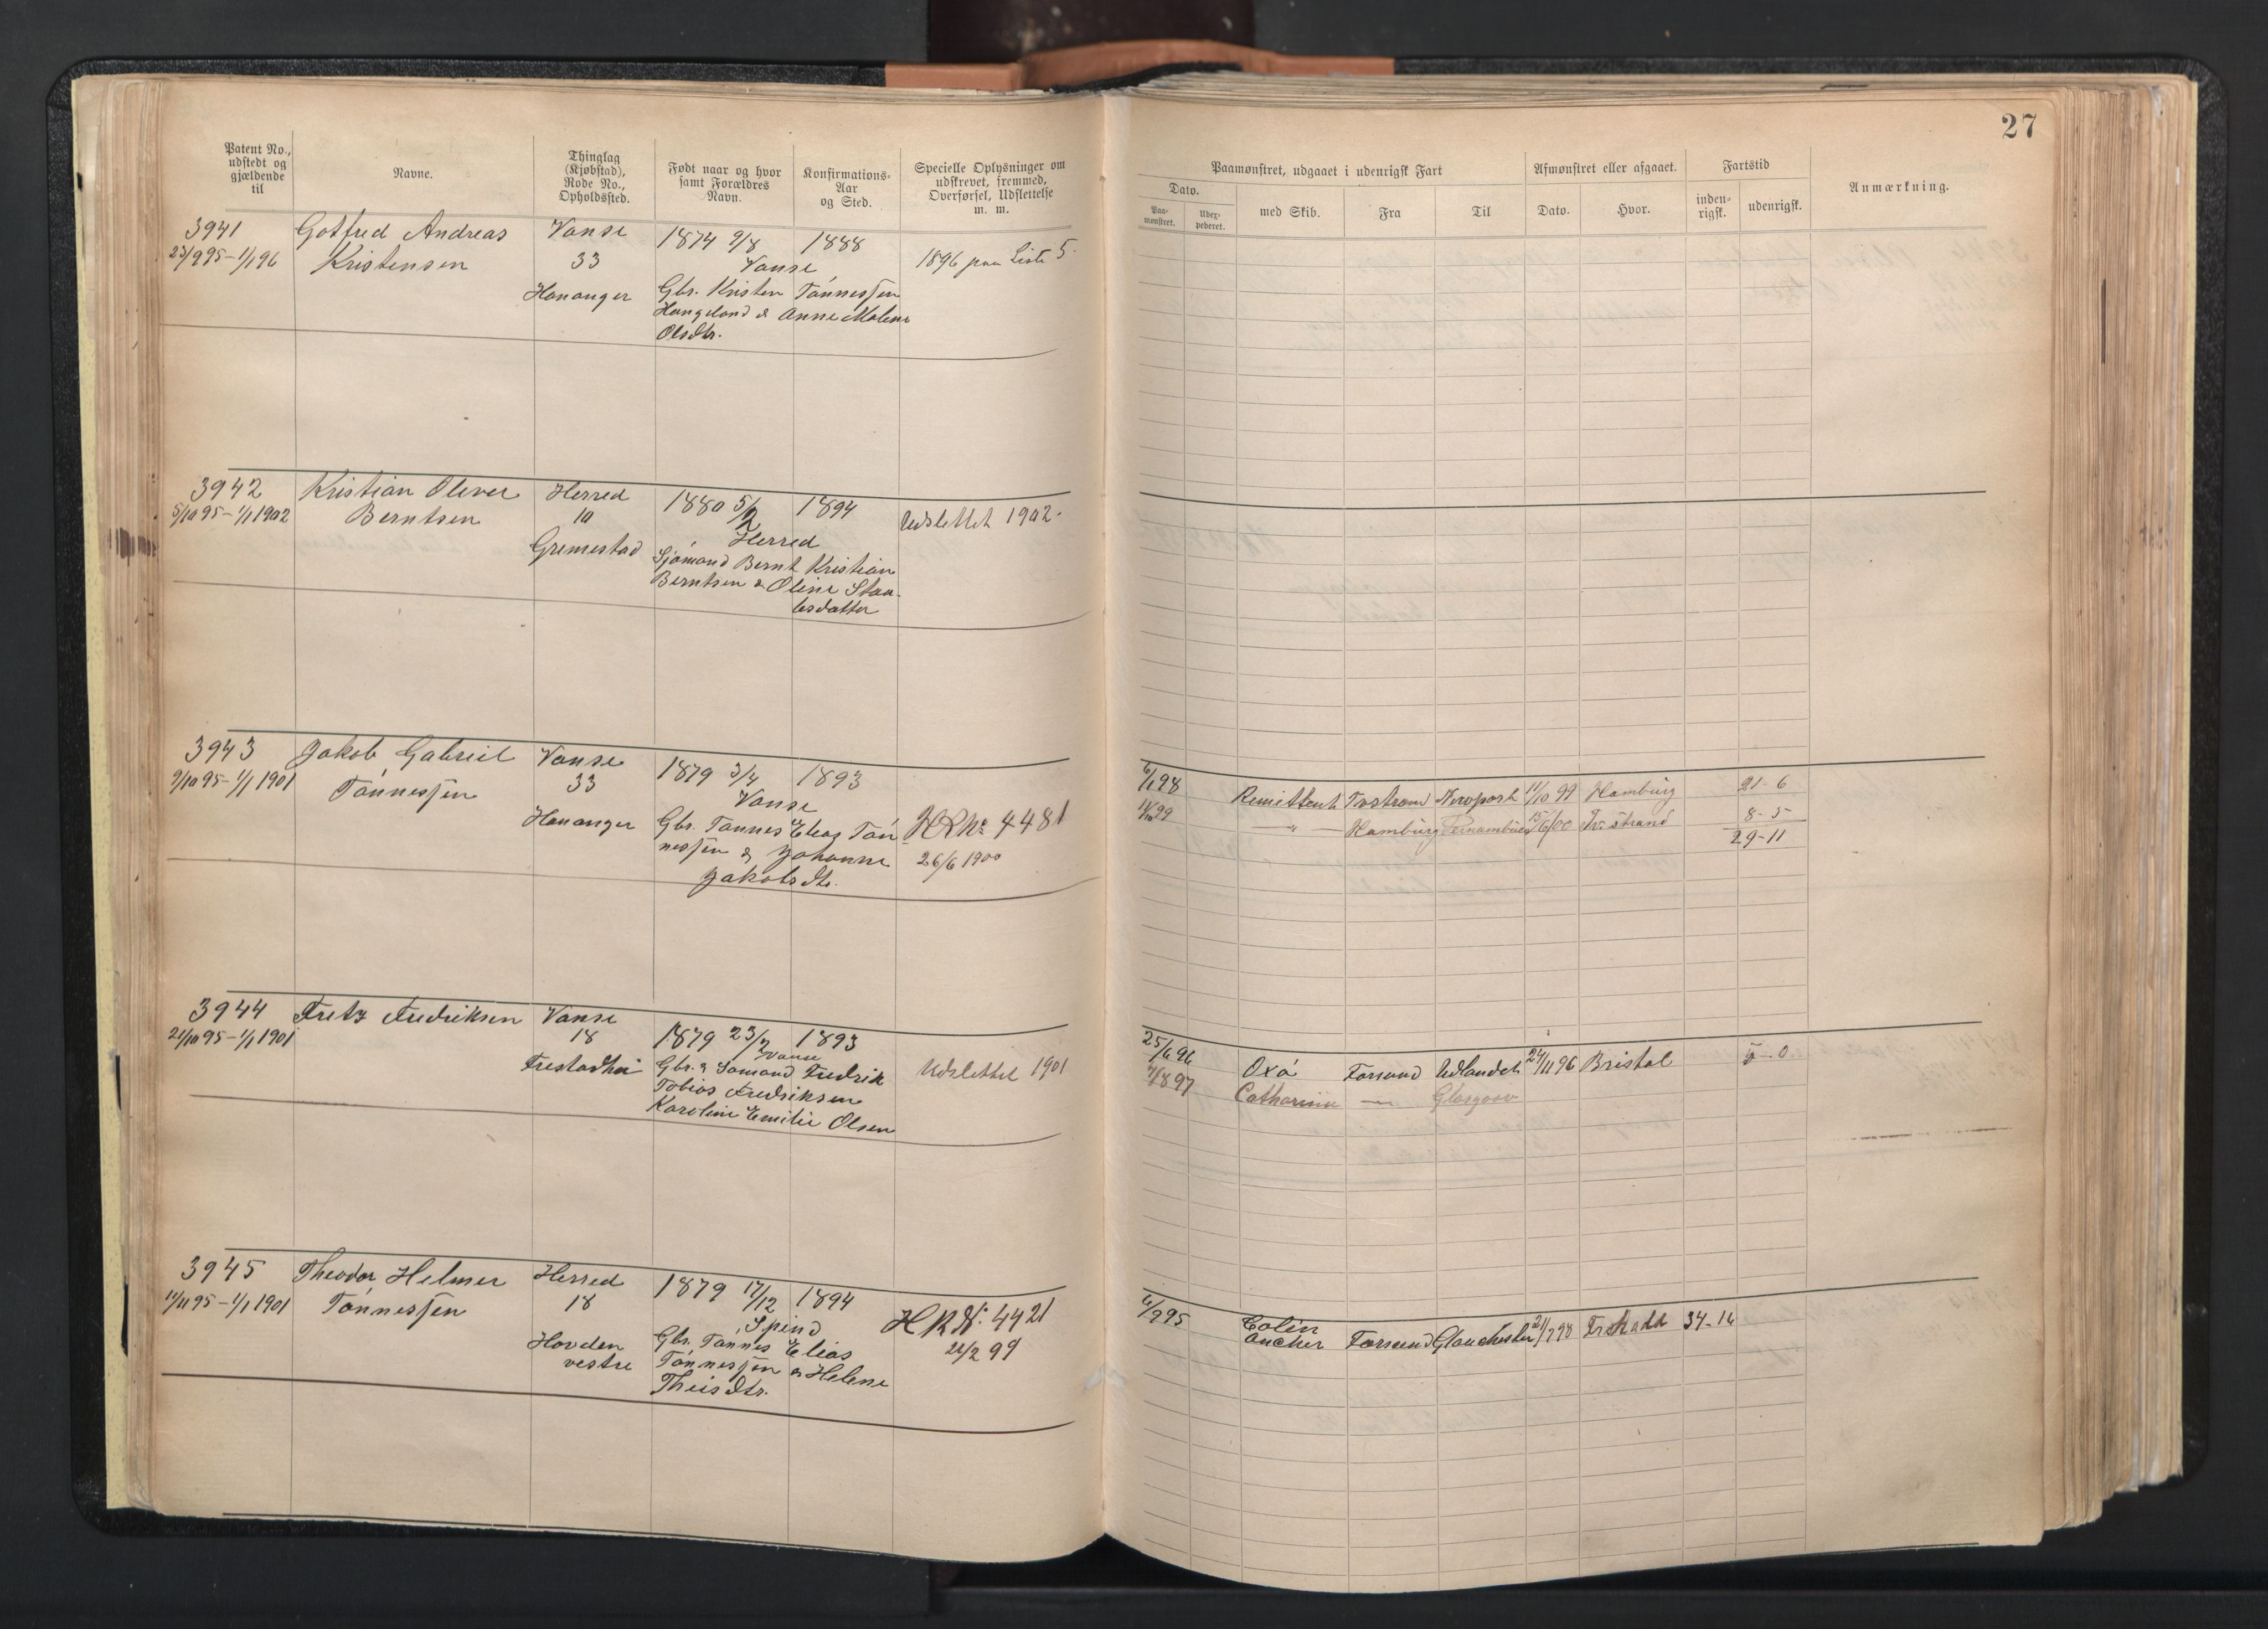 27
Patent No., udstedt og gjældende til
Navne.
Thinglag (Kjøbstad), Rode No., Opholdssted.
Født naar og hvor samt Forældres Navn.
Konfirmations-Aar og Sted.
Specielle Oplysninger om udskrevet, fremmed, Overførsel, Udslettelse m. m.
Paamønstret, udgaaet i udenrigsk Fart
Dato.
Paa-mønstret.
Uder-pederet.
med Skib.
Fra
Til
Afmønstret eller afgaaet.
Dato.
Hvor.
Fartstid
inden-rigsk.
udenrigsk.
Anmærkning.
3941 Gotfred Andreas Vanse 1874 9/8 1888
23/9 95 - 1/1 96 Kristensen 33 Vanse 1896 paa Liste 5.
Hananger Gbr. Kristen Tønnessen
Haugeland & Anne Malene
Olsdtr.
3942 Kristian Oliver Herred 1880 5/2 1894
5/10 95 - 1/1 1902 Berntsen 10 Herred Udslettet 1902.
Gremestad Sjømand Bernt Kristian
Berntsen & Oline Staa-
lesdatter
3943 Jakob Gabriel Vanse 1879 3/4 1893
9/10 95 - 1/1 1901 Tønnessen 33 Vanse
Hananger Gbr. Tønnes Elias Tøn HR No 4481
nessen & Johanne 26/6 1900
Jakobsdtr.
6/1 98 Remittent Tvstrand Newport 11/10 99 Hamburg 21-6
11/10 99 -"- Hamburg Pernambuco 15/6 00 Tv.strand 8-5
29-11
3944 Fretz Fredriksen Vanse 1879 23/2 1893
21/10 95 - 1/1 1901 18 Vanse
Frestadhei Gbr. & Sømand Fredrik Udslettet 1901
Tobias Fredriksen
Karoline Emilie Olsen
25/6 96 Oxø Farsund Udlandet 24/11 96 Bristol 5-0
7/8 97 Catharina - Glasgow
3945 Theodor Helmer Herred 1879 17/12 1894
11/11 95 - 1/1 1901 Tønnessen 18 Spind HR No. 4421
Hovden Gbr. Tønnes Elias 22/2 99
vestre Tønnessen & Helene
Theisdtr.
6/9 95 Colin
Archer Farsund Glouchester 21/7 98 Frshald 34-16